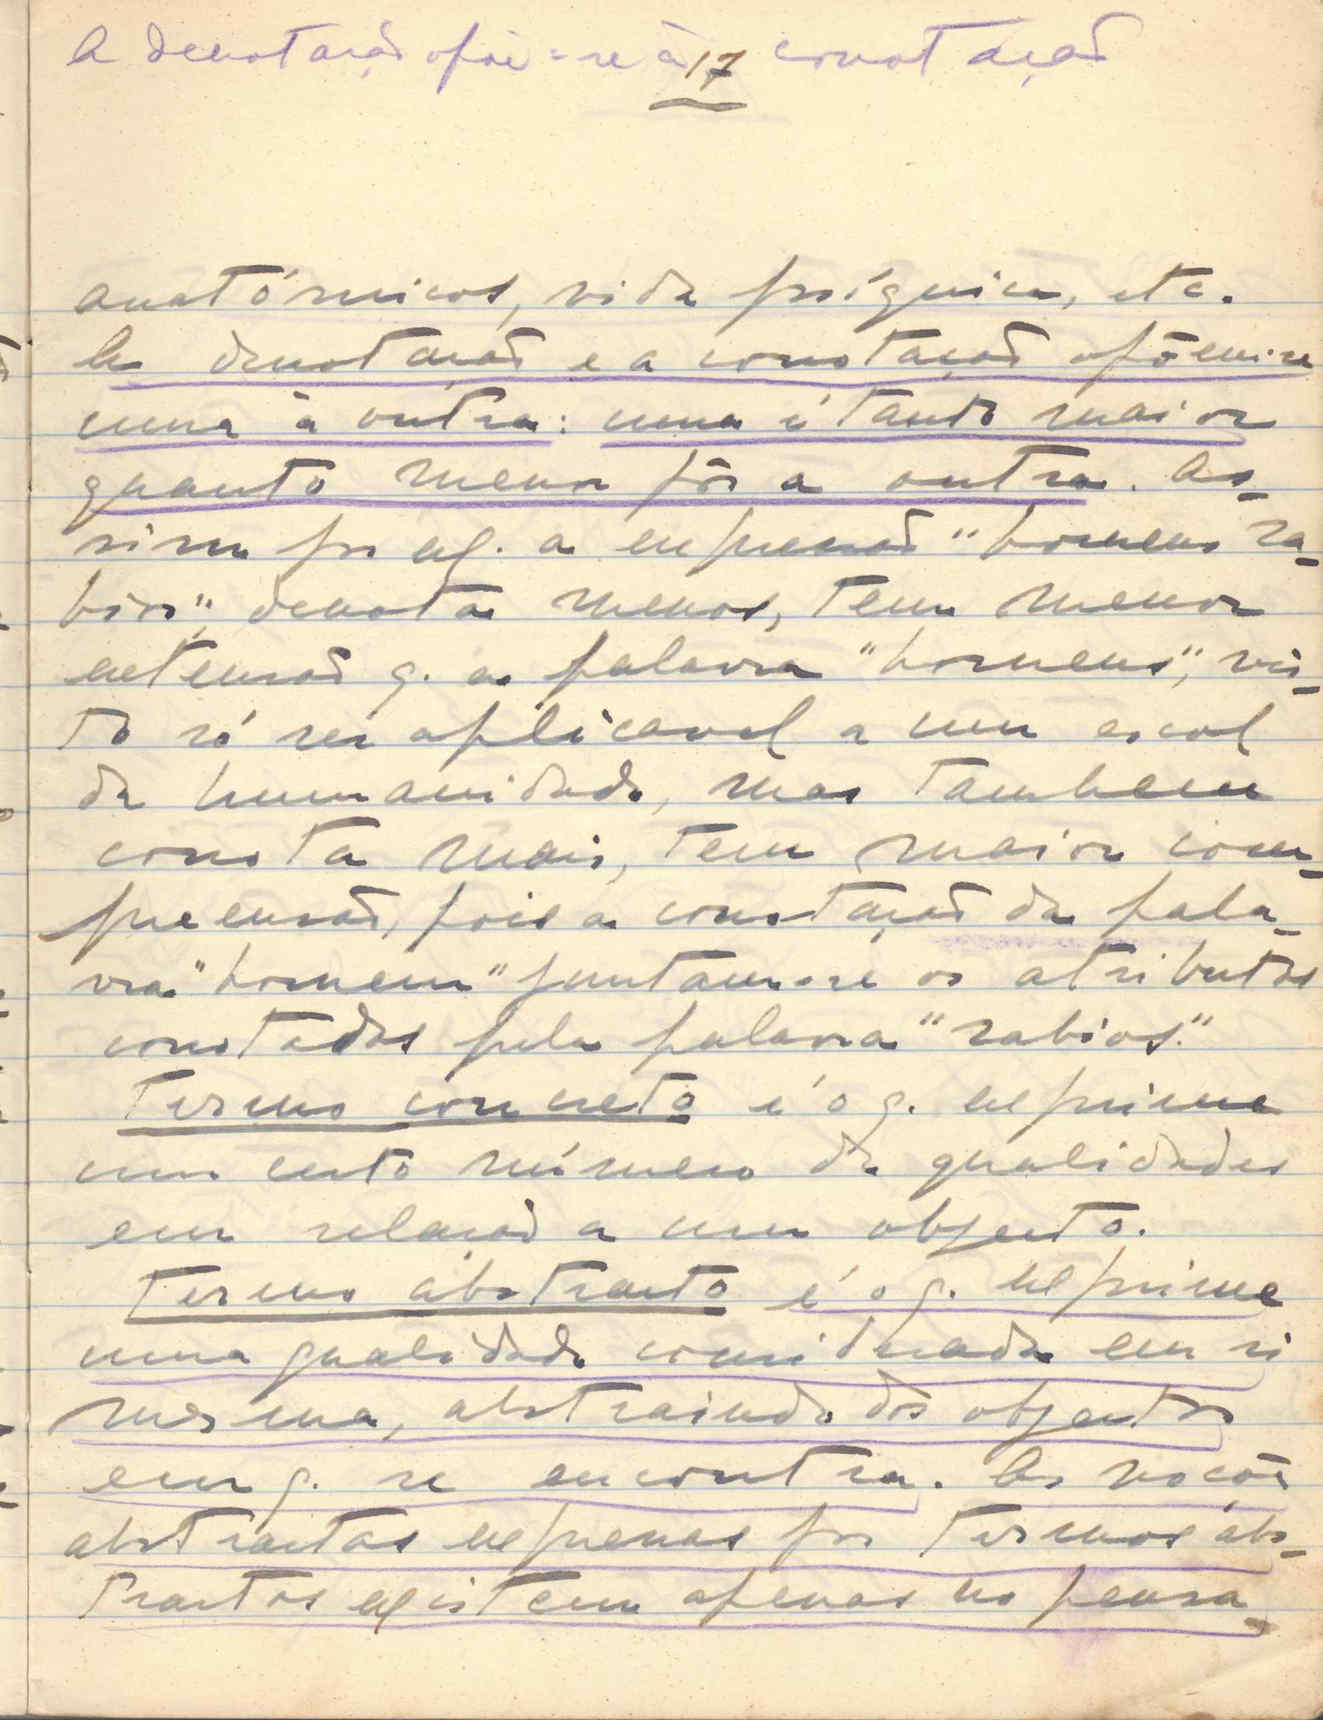 A denotação opõe-se à conotação
17
anatómicos, vida psíquica, etc.
A denotação e a conotação opõem-se
uma à outra: uma é tanto maior
quanto menor fôr a outra. As-
sim por ex. a expressão "homens sa-
bios", denota menos, tem menor
extensão q. a palavra "homens", vis-
to só ser aplicavel a um escol
da humanidade, mas tambem
conota mais, tem maior com-
preensão, pois a conotação da pala-
vra "homem" juntam-se os atributos
conotados pela palavra "sabios".
Termo concreto é o q. exprime
um certo número de qualidades
em relação a um objecto.
Termo abstracto é o q. exprime
uma qualidade considerada em si
mesma, abstraindo dos objectos
em q. se encontra. As noções
abstractas expressas por termos abs-
tractos existem apenas no pensa-